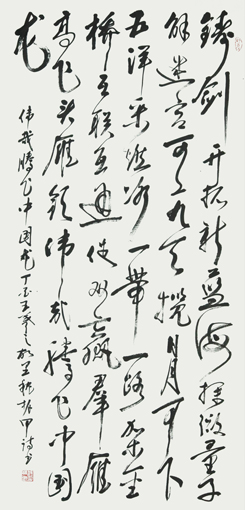 铸剑开拓新蓝海探微量子
解迷宫可上九天揽月可下
五洋采燃冰一带一路架金
桥互联互通促双赢群雁
高飞头雁领伟哉腾飞中国
龙
伟哉腾飞中国龙丁酉
甲诗书